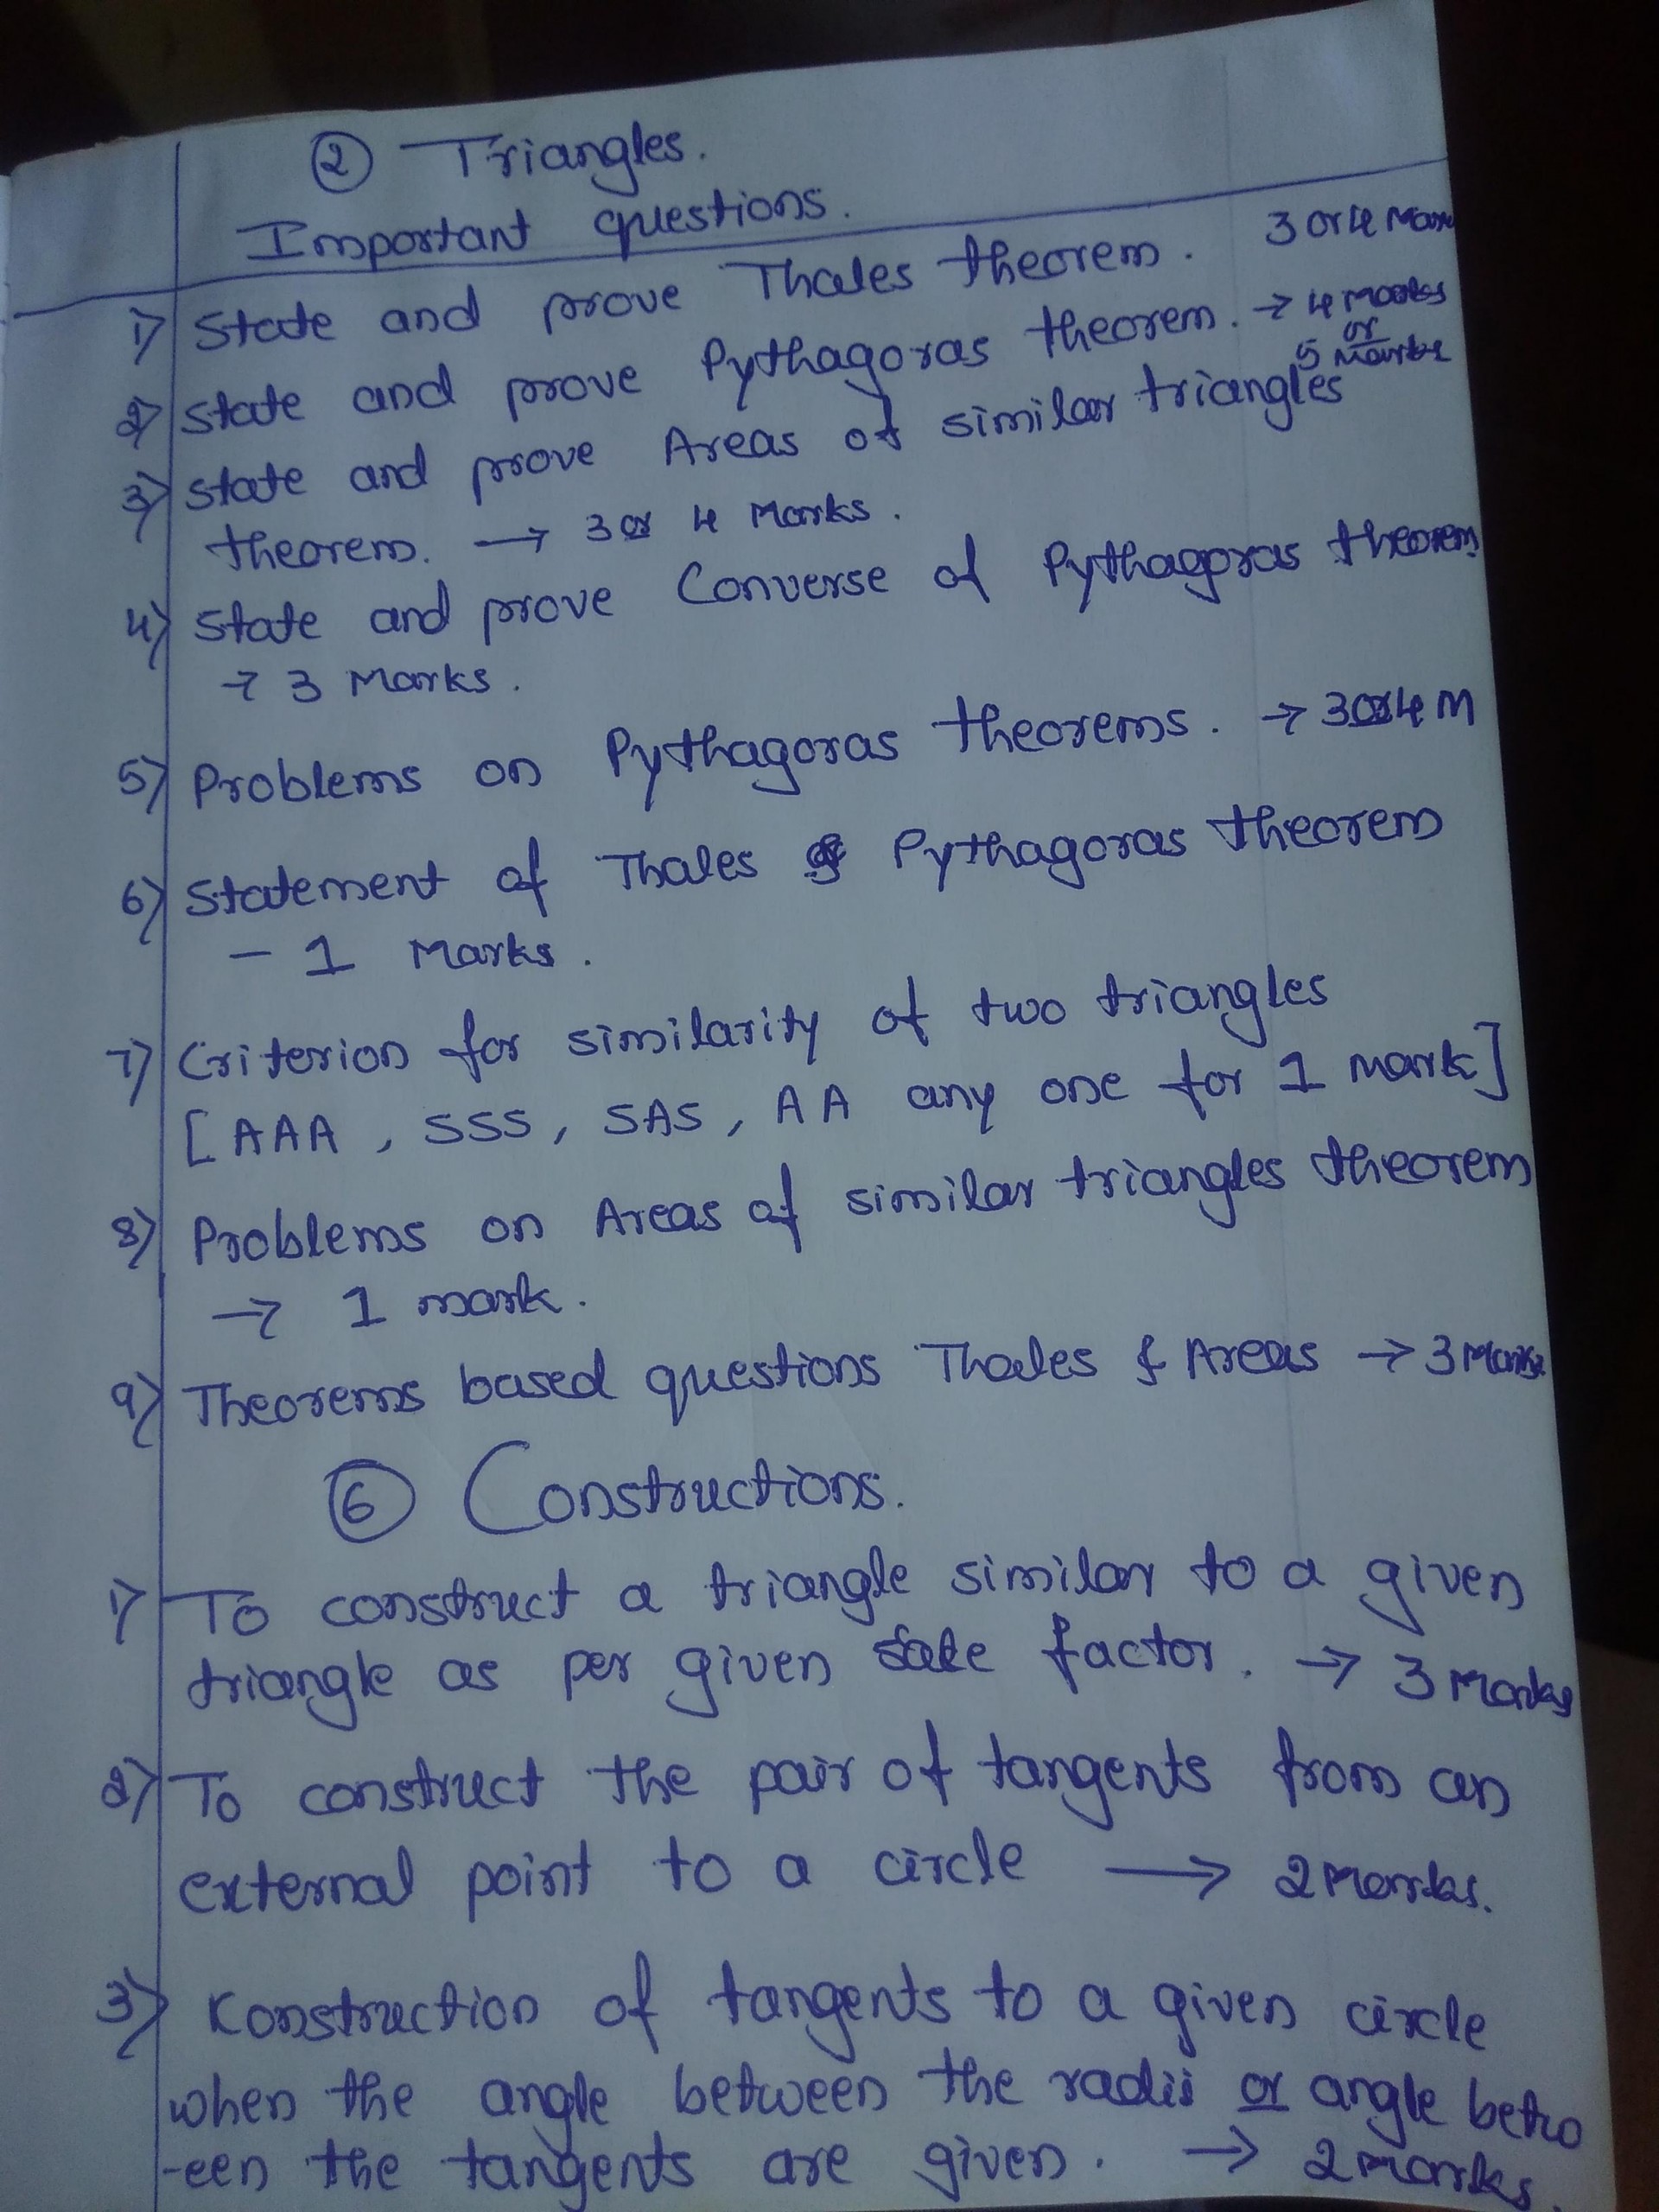 ② Triangles.
Important questions.
1) State and prove Thales theorem. 3 or 4 Mark
2) State and prove Pythagoras theorem. → 4 Marks
or
5 Marks
3) State and prove Areas of similar triangles
theorem. → 3 or 4 Marks.
4) State and prove Converse of Pythagoras theorem
→ 3 Marks.
5) Problems on Pythagoras theorems. → 3 or 4 M
6) Statement of Thales & Pythagoras theorem
- 1 Marks.
7) Criterion for similarity of two triangles
[AAA, SSS, SAS, AA any one for 1 mark]
8) Problems on Areas of similar triangles theorem
→ 1 mark.
9) Theorems based questions Thales & Areas → 3 Marks
⑥ Constructions.
1) To construct a triangle similar to a given
triangle as per given scale factor. → 3 Marks
2) To construct the pair of tangents from an
external point to a circle → 2 Marks.
3) Konstruction of tangents to a given circle
when the angle between the radii or angle betw
-een the tangents are given. → 2 Marks.